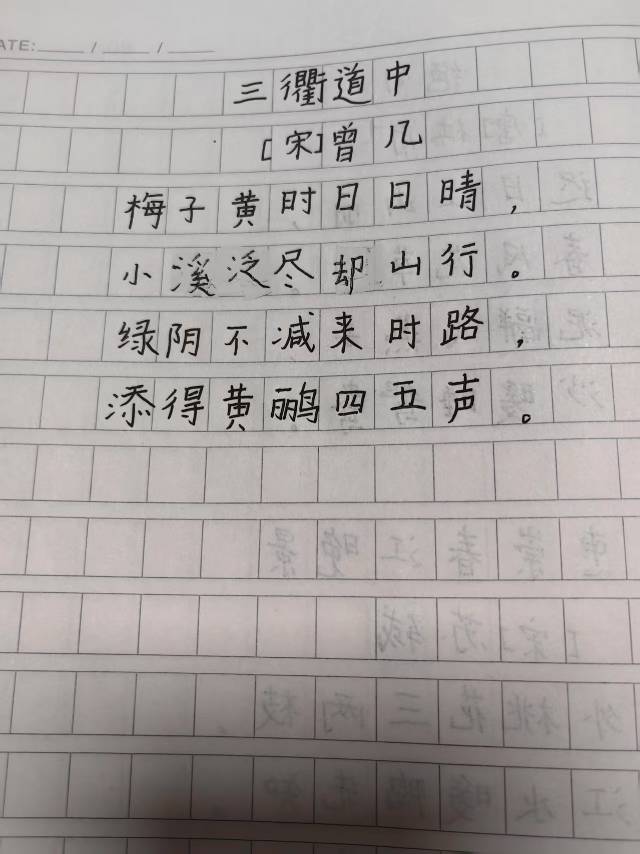 ATE: / /
三衢道中
[宋]曾几
梅子黄时日日晴，
小溪泛尽却山行。
绿阴不减来时路，
添得黄鹂四五声。